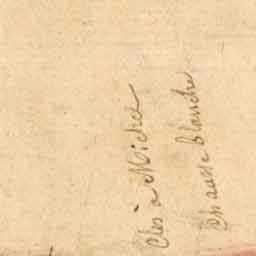 Cles à Michel
Chausse blanche